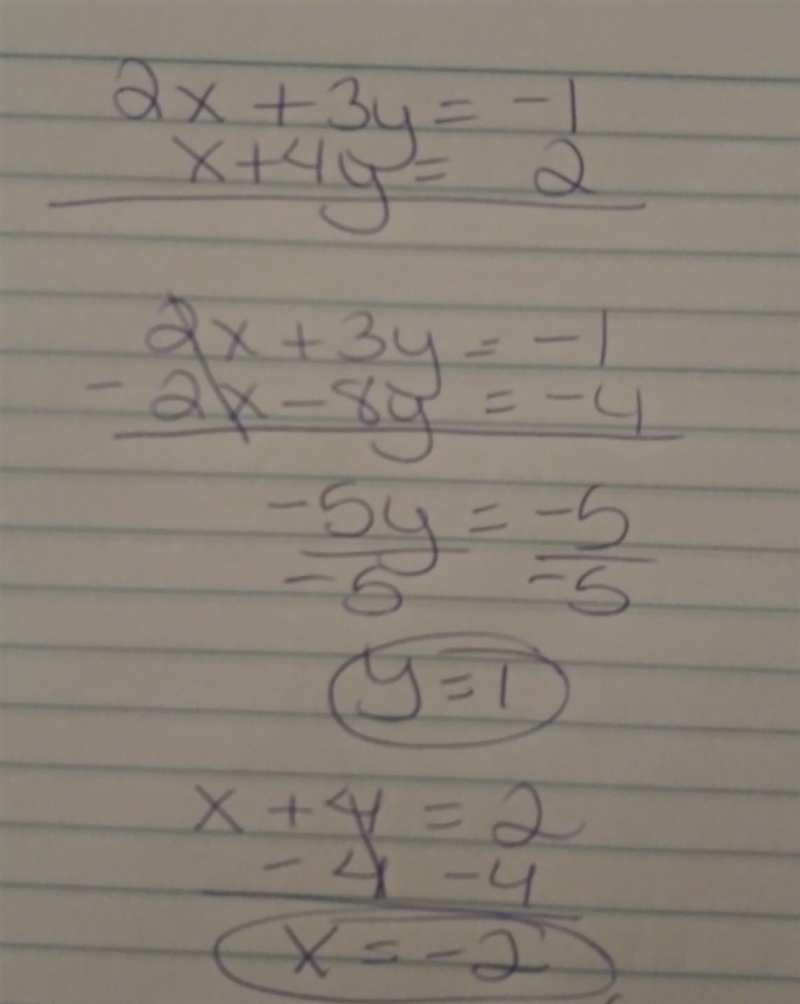 2x + 3y = -1
x + 4y = 2
2x + 3y = -1
- 2x - 8y = -4
-5y = -5
-5 -5
y = 1
x + 4 = 2
- 4 -4
x = -2